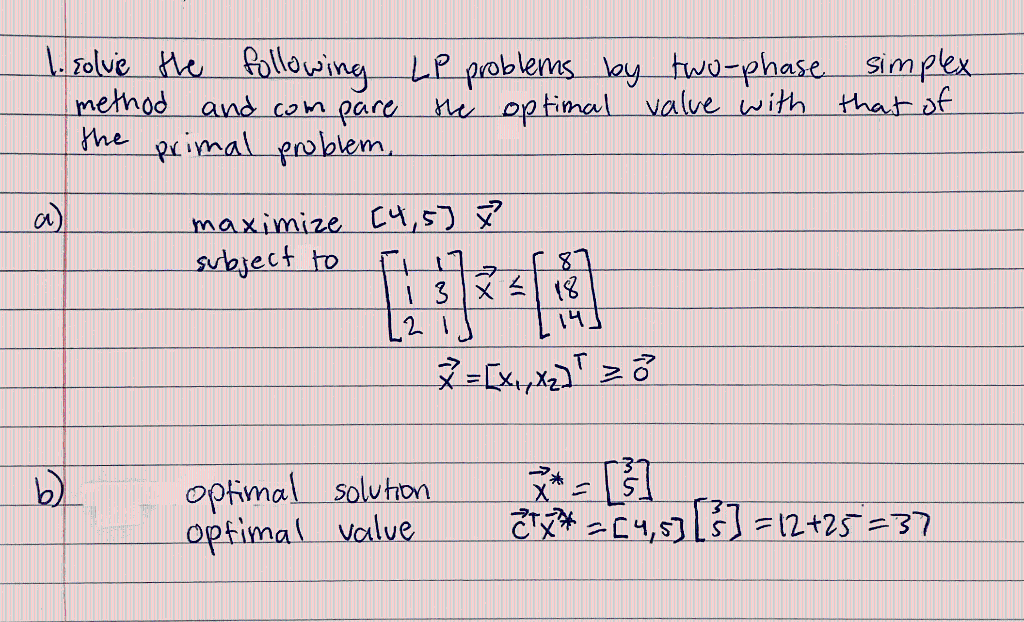 1. solve the following LP problems by two-phase simplex
method and compare the optimal value with that of
the primal problem.
a) maximize [4,5] x⃗
subject to [1 1; 1 3; 2 1] x⃗ ≤ [8; 18; 14]
x⃗ = [x₁, x₂]ᵀ ≥ 0⃗
b) optimal solution x⃗* = [3; 5]
optimal value c⃗ᵀx⃗* = [4,5] [3; 5] = 12+25 = 37